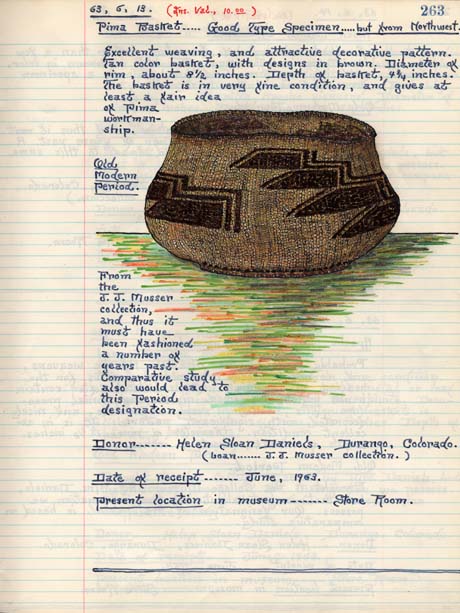 63, 6, 13. (Ins. Val., 10.00)
263
Pima Basket..... Good Type Specimen.....but from Northwest.
Excellent weaving, and attractive decorative pattern.
Tan color basket, with designs in brown. Diameter of
rim, about 8½ inches. Depth of basket, 4¾ inches.
The basket is in very fine condition, and gives at
least a fair idea
of Pima
workman-
ship.
Old
Modern
Period.
From
the
J. J. Musser
collection,
and thus it
must have
been fashioned
a number of
years past.
Comparative study
also would lead to
this Period
designation.
Donor------- Helen Sloan Daniels, Durango, Colorado.
(Loan....... J. J. Musser collection. )
Date of receipt------- June, 1963.
Present location in museum------- Store Room.